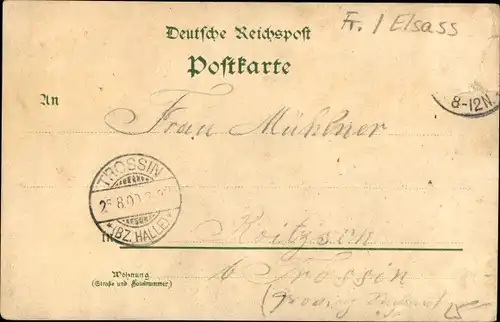 Fr. / Elsass
Deutsche Reichspost
Postkarte
8-12N.
An
Frau Mühlner
TROSSIN
25.8.00
*(BZ. HALLE)*
in Roitzsch
b Trossin
(Provinz
Wohnung
(Straße und Hausnummer)